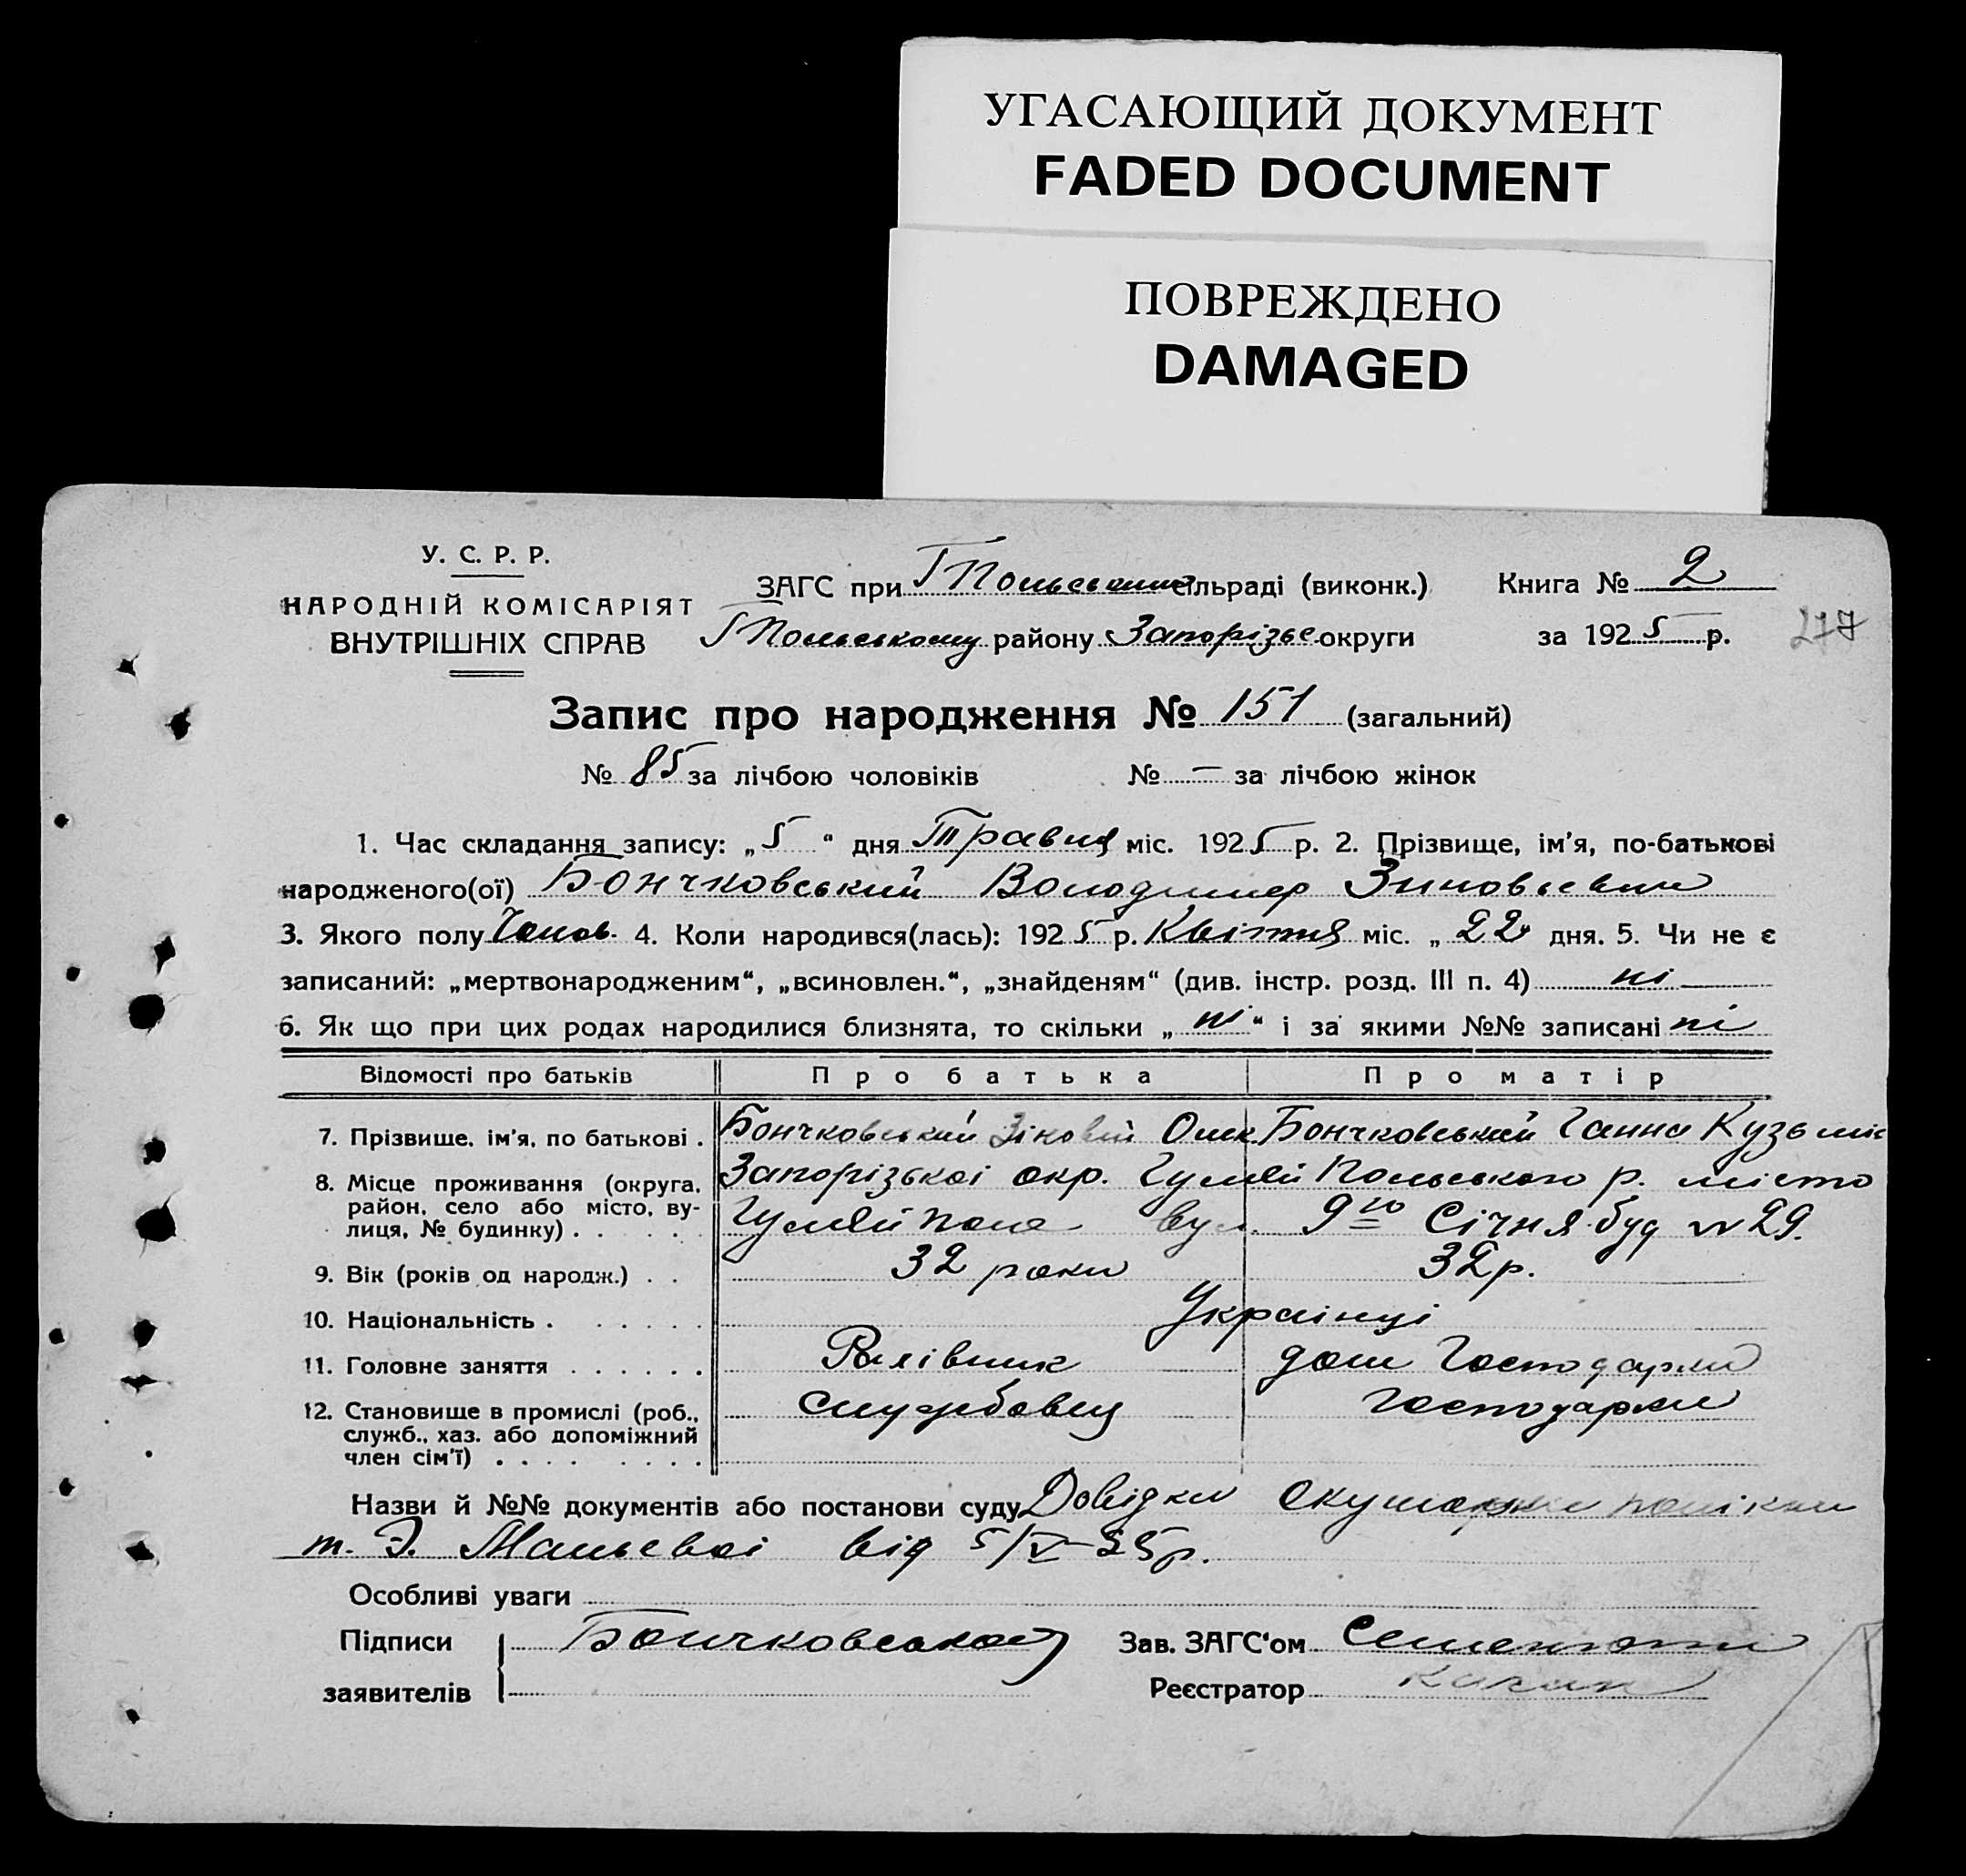 УГАСАЮЩИЙ ДОКУМЕНТ
FADED DOCUMENT
ПОВРЕЖДЕНО
DAMAGED
У. С. Р. Р.
НАРОДНІЙ КОМІСАРІЯТ
ВНУТРІШНІХ СПРАВ
ЗАГС при Г Польським сільраді (виконк.) Книга № 2
Г Польському району Запорізьс округи за 1925 р.
277
Запис про народження № 151 (загальний)
№ 85 за лічбою чоловіків № — за лічбою жінок
1. Час складання запису: „5“ дня Травня міс. 1925 р. 2. Прізвище, ім'я, по-батькові
народженого(ої) Бончковський Володимер Зиновьевич
3. Якого полу Чолов. 4. Коли народився(лась): 1925 р. Квітня міс. „22 дня. 5. Чи не є
записаний: „мертвонародженим“, „всиновлен.“, „знайденям“ (див. інстр. розд. III п. 4) ні
6. Як що при цих родах народилися близнята, то скільки „ні“ і за якими №№ записані ні
Відомості про батьків Про батька Про матір
7. Прізвище, ім'я, по батькові . Бончковський Зіновій Омк. Бончковський Ганна Кузьміє
8. Місце проживання (округа, район, село або місто, вулиця, № будинку) . . . . . Запорізької окр. Гуляй Польського р. місто
Гуляй поле вул. 9го Січня буд № 29.
9. Вік (років од народж.) . . 32 роки 32 р.
10. Національність . . . . . . Українці
11. Головне заняття . . . . . . дом Господарки
12. Становище в промислі (роб., служб., хаз. або допоміжний член сім'ї) . . . . . . . . службовец господарки
Назви й №№ документів або постанови суду Довідки Окушорки
т. Э. Мальевої від 5/V-25р.
Особливі уваги
Підписи Бончковська Зав. ЗАГС'ом
заявителів Реєстратор